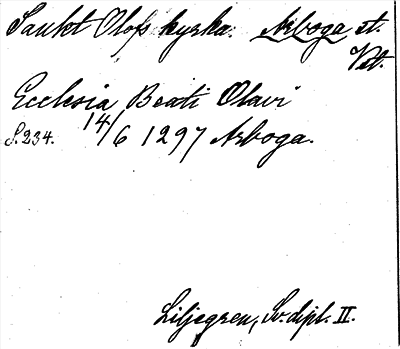 Sankt Olofs kyrka. Arboga, st.
Vstm.
Ecclesia Beati Olavi
S. 234. 14/6 1297 Arboga.
Liljegren, Sv. dipl. II.